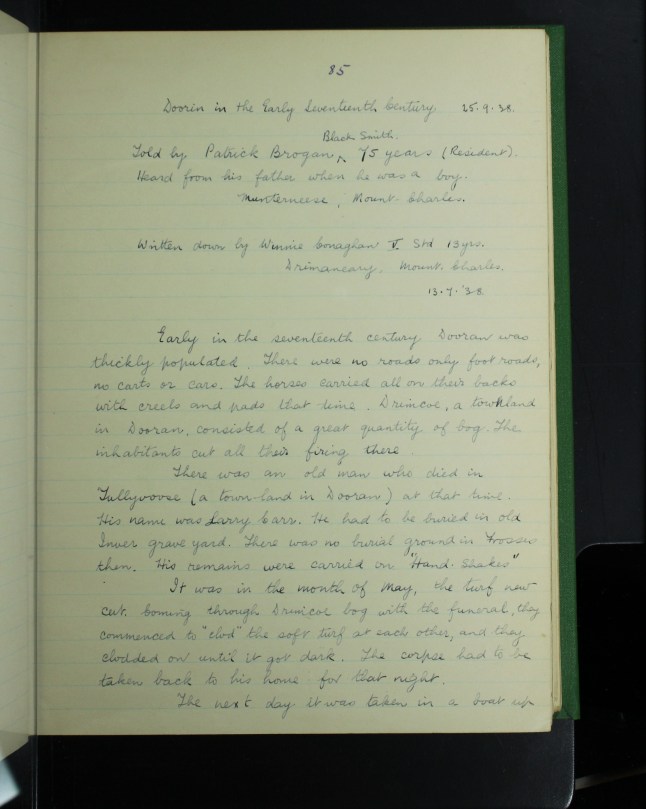 85
Dooren in the Early Seventeenth Century. 25.9.38.
Black Smith.
Told by Patrick Brogan ^ 75 years (Resident).
Heard from his father when he was a boy.
Munterneese, Mount-Charles.
Written down by Winnie Conaghan V. Std 13 yrs.
Drimaneary, Mount. Charles.
13.7.'38.
Early in the seventeenth century Dooran was
thickly populated. There were no roads only foot roads,
no carts or cars. The horses carried all on their backs
with creels and pads that time. Drimcoe, a townland
in Dooran, consisted of a great quantity of bog. The
inhabitants cut all their firing there.
There was an old man who died in
Tullyvoose (a town-land in Dooran) at that time.
His name was Larry Carr. He had to be buried in old
Inver grave yard. There was no burial ground in Frosses
then. His remains were carried on "Hand-Shakes"
It was in the month of May, the turf new
cut. Coming through Drimcoe bog with the funeral, they
commenced to "clod" the soft turf at each other, and they
clodded on until it got dark. The corpse had to be
taken back to his home for that night.
The next day it was taken in a boat up